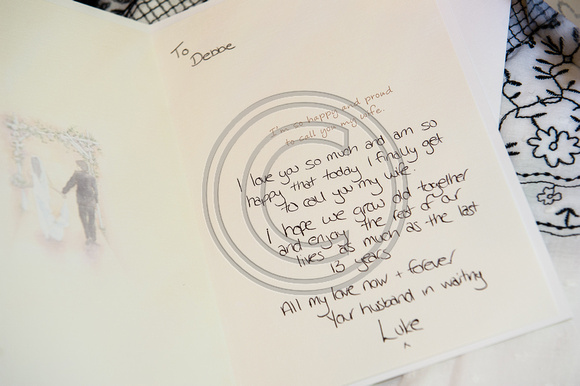 To
Debbe
I'm so happy and proud
to call you my wife.
I love you so much and am so
happy that today I finally get
to call you my wife.
I hope we grow old together
and enjoy the rest of our
lives as much as the last
13 years
All my love now + forever
Your husband in waiting
Luke
x